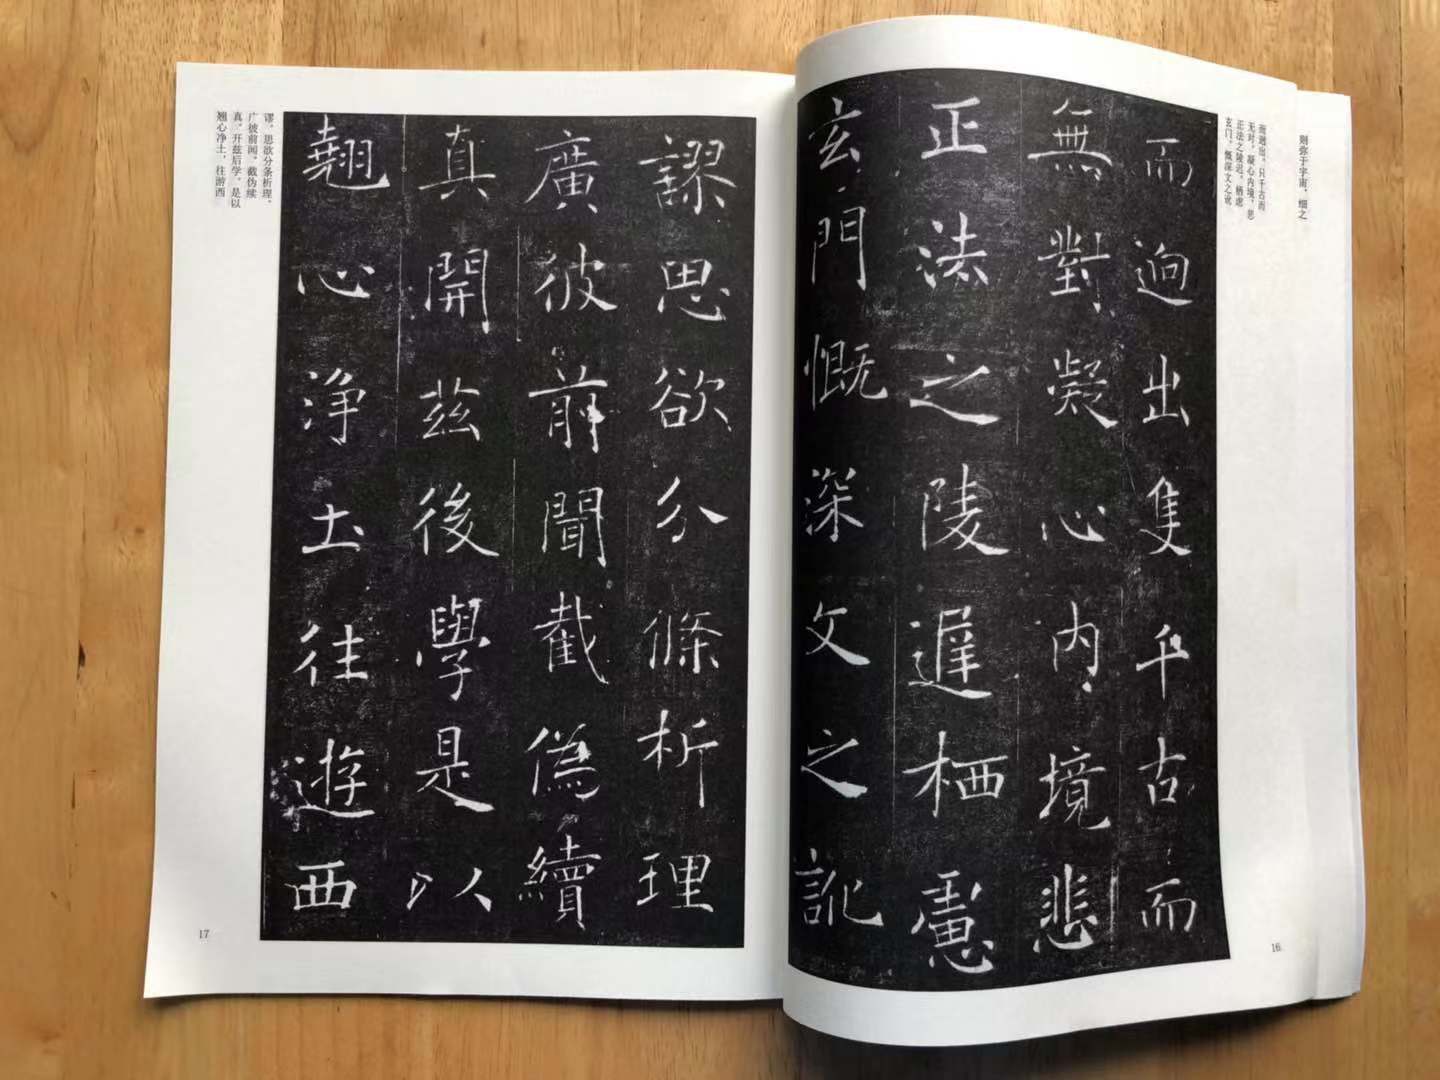 则弥于宇宙,细之
而迥出。只千古而
无对。凝心内境,悲
正法之陵迟。栖虑
玄门,慨深文之讹
而逈出隻千古而
無對凝心内境悲
正法之陵遲栖慮
玄門慨深文之訛
16
謬思欲分條析理
廣彼前聞截偽續
真開茲後學是以
翹心浄土往遊西
谬。思欲分条析理,
广彼前闻。截伪续
真,开兹后学。是以
翘心净土,往游西
17